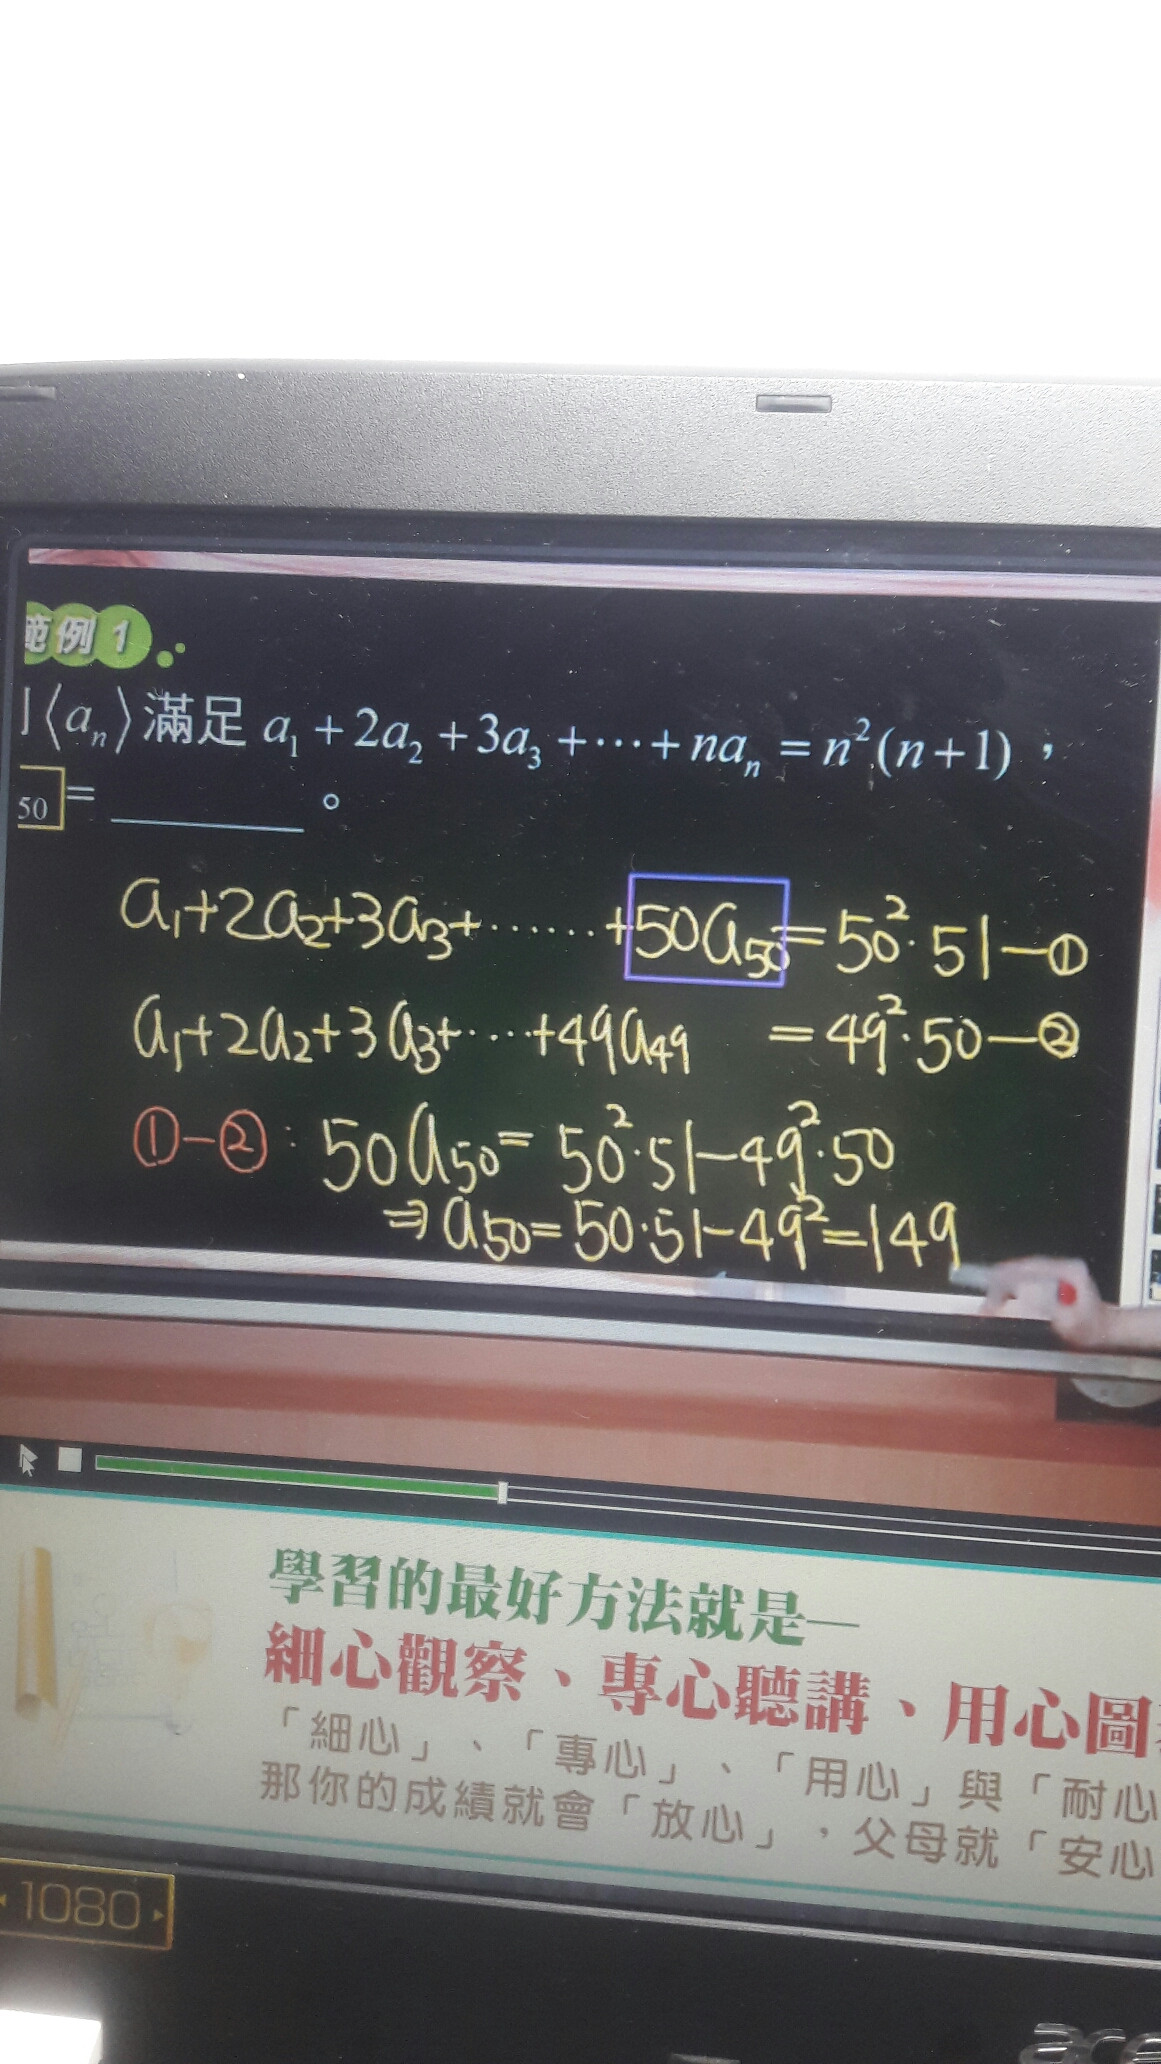 範例1
⟨aₙ⟩滿足 a₁+2a₂+3a₃+⋯+naₙ=n²(n+1),
50 = ________ 。
a₁+2a₂+3a₃+⋯⋯+50a₅₀=50²·51—①
a₁+2a₂+3a₃+⋯+49a₄₉ =49²·50—②
①-②: 50a₅₀=50²·51-49²·50
⇒a₅₀=50·51-49²=149
學習的最好方法就是—
細心觀察、專心聽講、用心圖
「細心」、「專心」、「用心」與「耐心
那你的成績就會「放心」,父母就「安心
1080